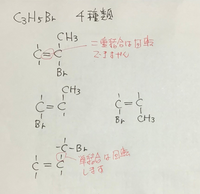 C₃H₅Br 4種類
CH₃
C=C
Br
二重結合は回転
できません
CH₃
C=C
Br
C=C
Br CH₃
C-Br
C=C
単結合は回転
します